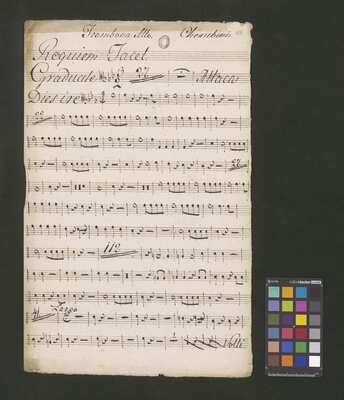 Trombona Alto. Cherubini
Requiem Tacet
Graduale 27 Attaca
Dies ire
27
112
Largo
Volti